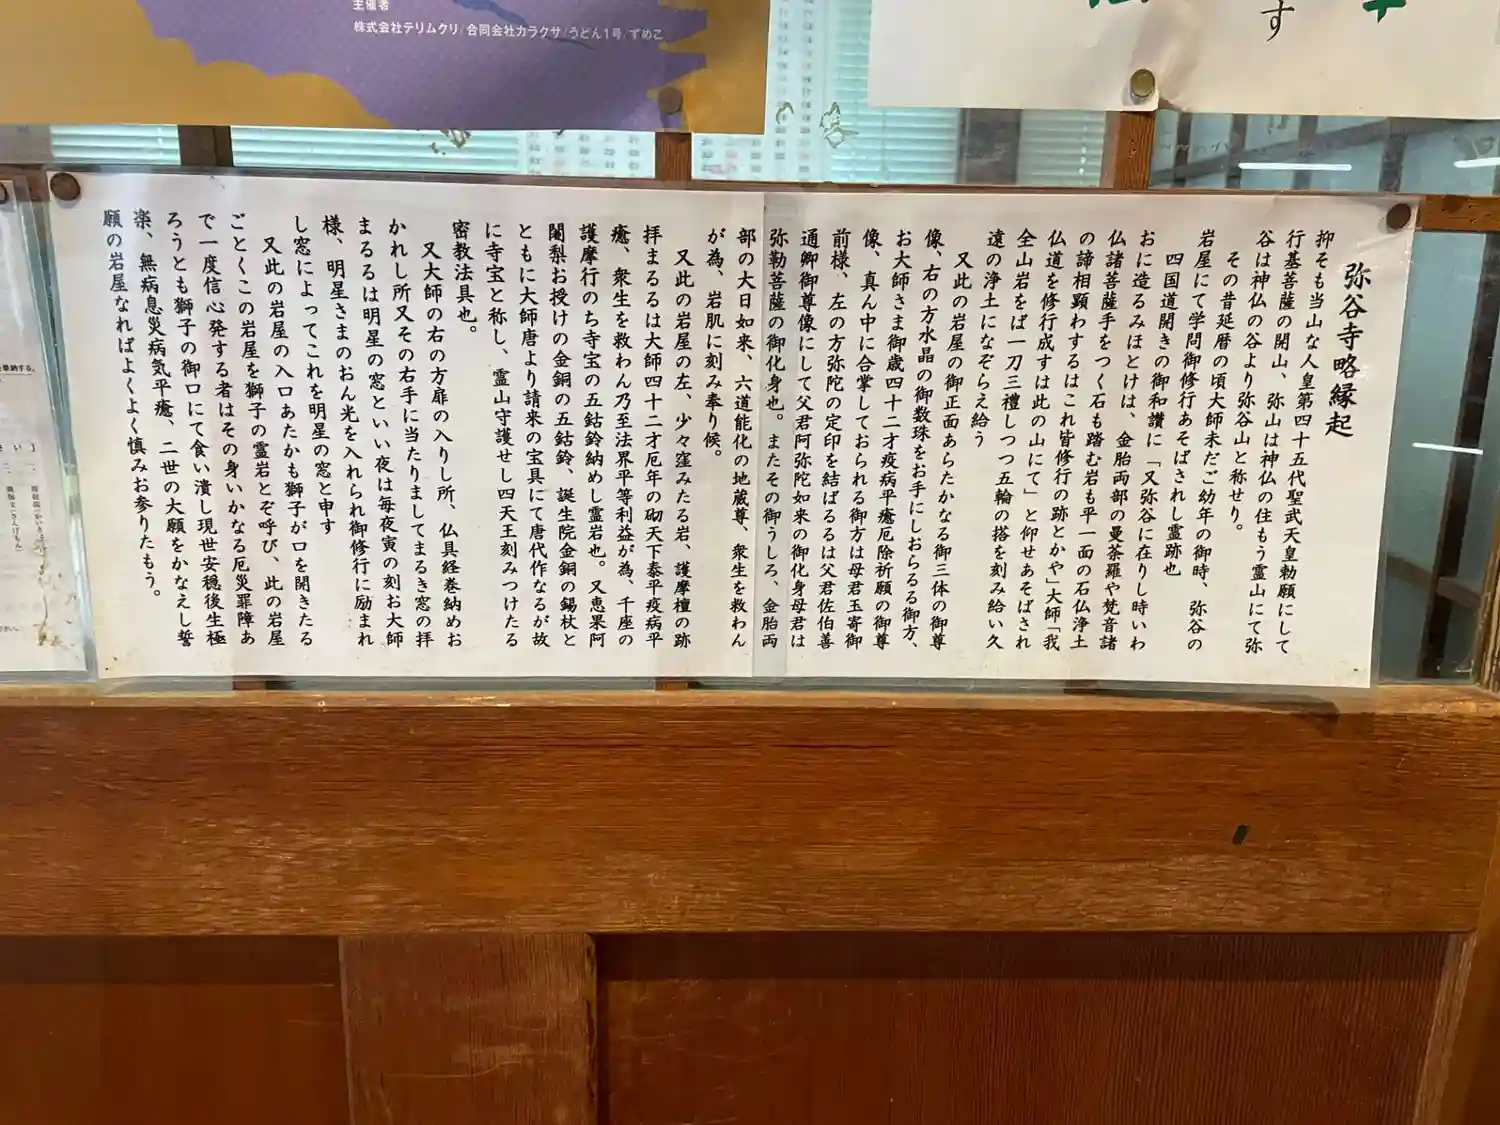 主催者
株式会社テリムクリ/合同会社カラクサ/うどん1号/ずめこ
す
弥谷寺略縁起
抑そも当山な人皇第四十五代聖武天皇勅願にして
行基菩薩の開山、弥山は神仏の住もう霊山にて弥
谷は神仏の谷より弥谷山と称せり。
その昔延暦の頃大師未だご幼年の御時、弥谷の
岩屋にて学問御修行あそばされし霊跡也
四国道開きの御和讃に「又弥谷に在りし時いわ
おに造るみほとけは、金胎両部の曼荼羅や梵音諸
仏諸菩薩手をつく石も踏む岩も平一面の石仏浄土
の諦相顕わするはこれ皆修行の跡とかや」大師「我
仏道を修行成すは此の山にて」と仰せあそばされ
全山岩をば一刀三禮しつつ五輪の塔を刻み給い久
遠の浄土になぞらえ給う
又此の岩屋の御正面あらたかなる御三体の御尊
像、右の方水晶の御数珠をお手にしおらるる御方、
お大師さま御歳四十二才疫病平癒厄除祈願の御尊
像、真ん中に合掌しておられる御方は母君玉寄御
前様、左の方弥陀の定印を結ばるるは父君佐伯善
通卿御尊像にして父君阿弥陀如来の御化身母君は
弥勒菩薩の御化身也。またその御うしろ、金胎両
部の大日如来、六道能化の地蔵尊、衆生を救わん
が為、岩肌に刻み奉り候。
又此の岩屋の左、少々窪みたる岩、護摩檀の跡
拝まるるは大師四十二才厄年の砌天下泰平疫病平
癒、衆生を救わん乃至法界平等利益が為、千座の
護摩行のち寺宝の五鈷鈴納めし霊岩也。又恵果阿
闍梨お授けの金銅の五鈷鈴、誕生院金銅の錫杖と
ともに大師唐より請来の宝具にて唐代作なるが故
に寺宝と称し、霊山守護せし四天王刻みつけたる
密教法具也。
又大師の右の方扉の入りし所、仏具経巻納めお
かれし所又その右手に当たりましてまるき窓の拝
まるるは明星の窓といい夜は毎夜寅の刻お大師
様、明星さまのおん光を入れられ御修行に励まれ
し窓によってこれを明星の窓と申す
又此の岩屋の入口あたかも獅子が口を開きたる
ごとくこの岩屋を獅子の霊岩とぞ呼び、此の岩屋
で一度信心発する者はその身いかなる厄災罪障あ
ろうとも獅子の御口にて食い潰し現世安穏後生極
楽、無病息災病気平癒、二世の大願をかなえし誓
願の岩屋なればよくよく慎みお参りたもう。